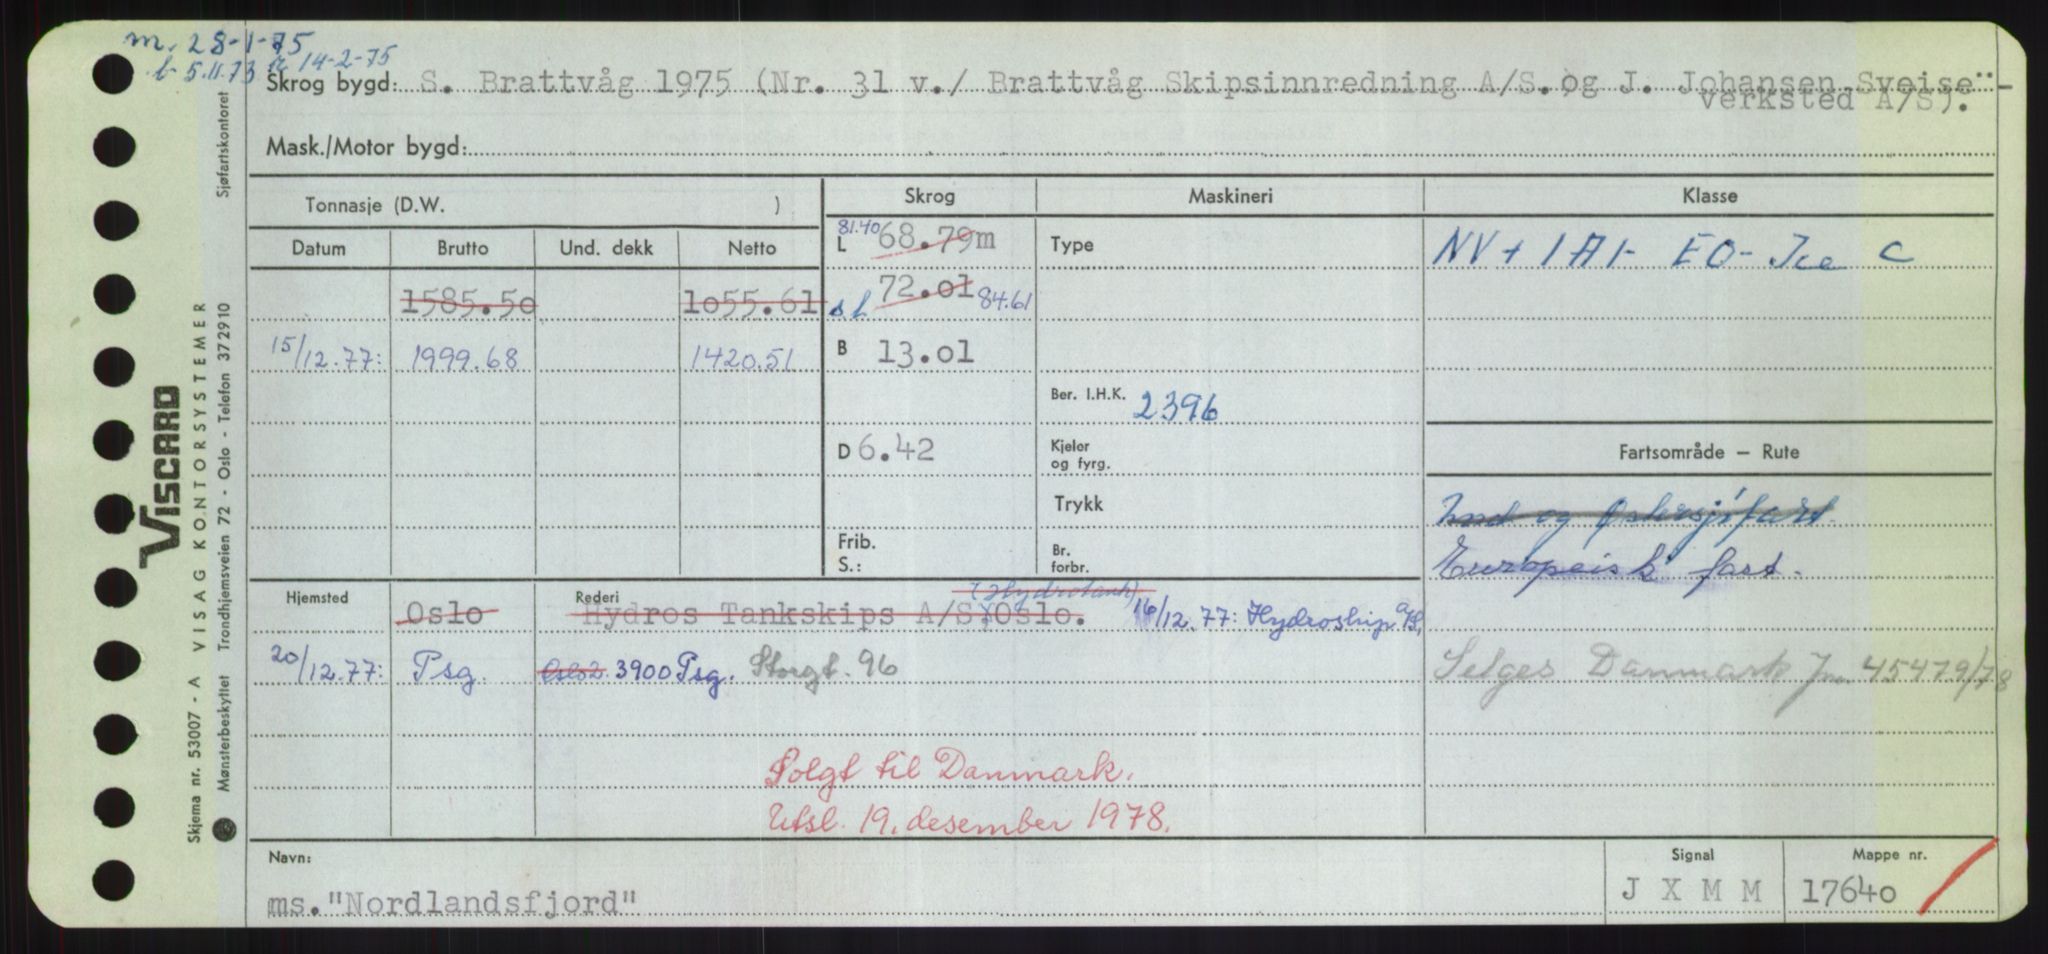 m. 28-1-75
b- 5.11.73 14-2-75
Skrog bygd: S. Brattvåg 1975 (Nr. 31 v./ Brattvåg Skipsinnredning A/S.og J. Johansen Sveise-
verksted A/S).
Mask./Motor bygd:
Tonnasje (D.W. )
Skrog
Maskineri
Klasse
Datum
Brutto
Und. dekk
Netto
L 81.40 68.79m
Type
NV + 1A1- EO- Ice C
1585.5o
1o55.61
s.l 72.o1 84.61
15/12.77:
1999.68
1420.51
B 13.o1
Ber. I.H.K. 2396
D 6.42
Kjeler
og fyrg.
Fartsområde – Rute
Trykk
Ind og Østersjøfart.
Frib.
S.:
Br.
forbr.
Europeisk fart.
Hjemsted
Oslo
Rederi
(Hydrotank)
Hydros Tankskips A/S, Oslo. 16/12.77: Hydroship A/S,
20/12.77: Psg.
Oslo 2. 3900 Psg. Storgt. 96
Selges Danmark Jnr. 45479/78
Solgt til Danmark.
Utsl. 19. desember 1978.
Navn:
ms."Nordlandsfjord"
Signal
J X M M
Mappe nr.
1764o
VISCARD
Skjema nr. 53007 - A VISAG KONTORSYSTEMER
Mønsterbeskyttet Trondhjemsveien 72 - Oslo - Telefon 372910
Sjøfartskontoret